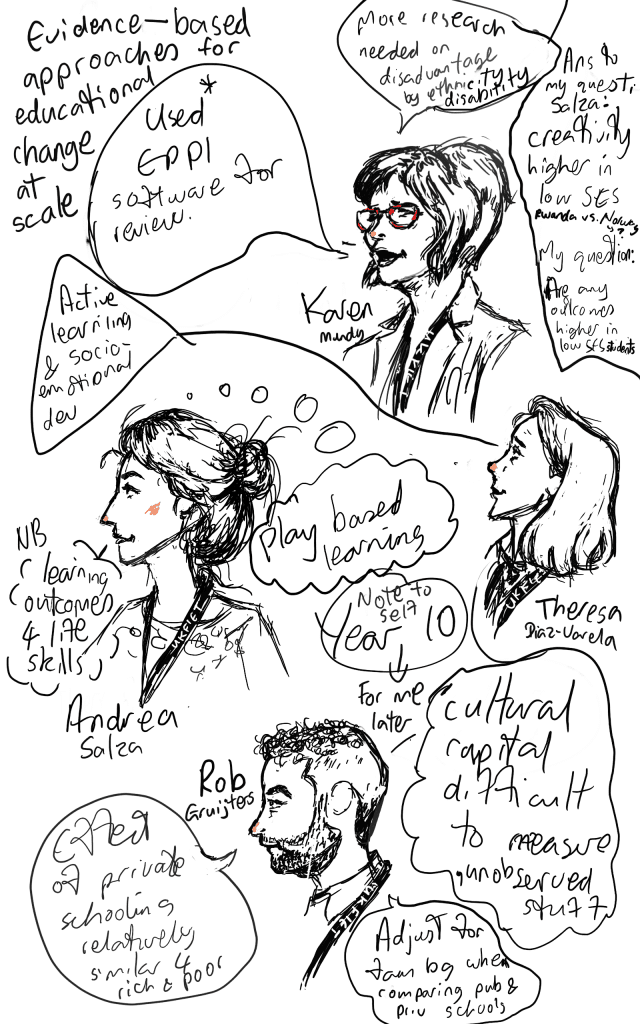 Evidence-based
approaches for
educational
change
at
scale
*
Used
EPPI
software for
review.
More research
needed on
disadvantage
by ethnicity
disability
Ans to
my questi
Salza:
creativity
higher in
low SES
Rwanda vs. Norway
?
My question:
Are any
outcomes
higher in
low SES students
Karen
Mundy
UKFIET
Active
learning
& socio-
emotional
dev
play based
learning
NB
learning
outcomes
4 life
skills
UKFIET
Andrea
Salza
UKFIE
Theresa
Diaz-Varela
Note to
self
Year 10
For me
later
cultural
capital
difficult
to measure
unobserved
stuff
Rob
Gruijters
UKFIET
Effect
of private
schooling
relatively
similar 4
rich & poor
Adjust for
fam bg when
comparing pub &
priv schools